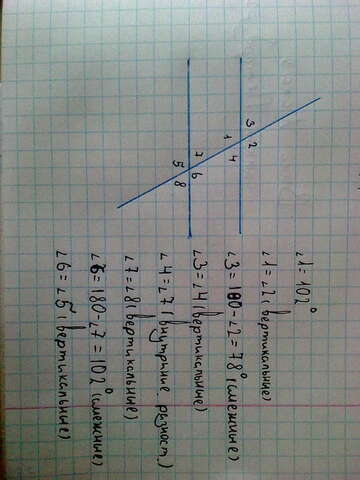 3
2
1
4
7
6
5
8
∠1 = 102°
∠1 = ∠2 (вертикальные)
∠3 = 180 - ∠2 = 78° (смежные)
∠3 = ∠4 (вертикальные)
∠4 = ∠7 (внутрине. разност.)
∠7 = ∠8 (вертикальные)
∠6 = 180 - ∠7 = 102° (смежные)
∠6 = ∠5 (вертикальные)